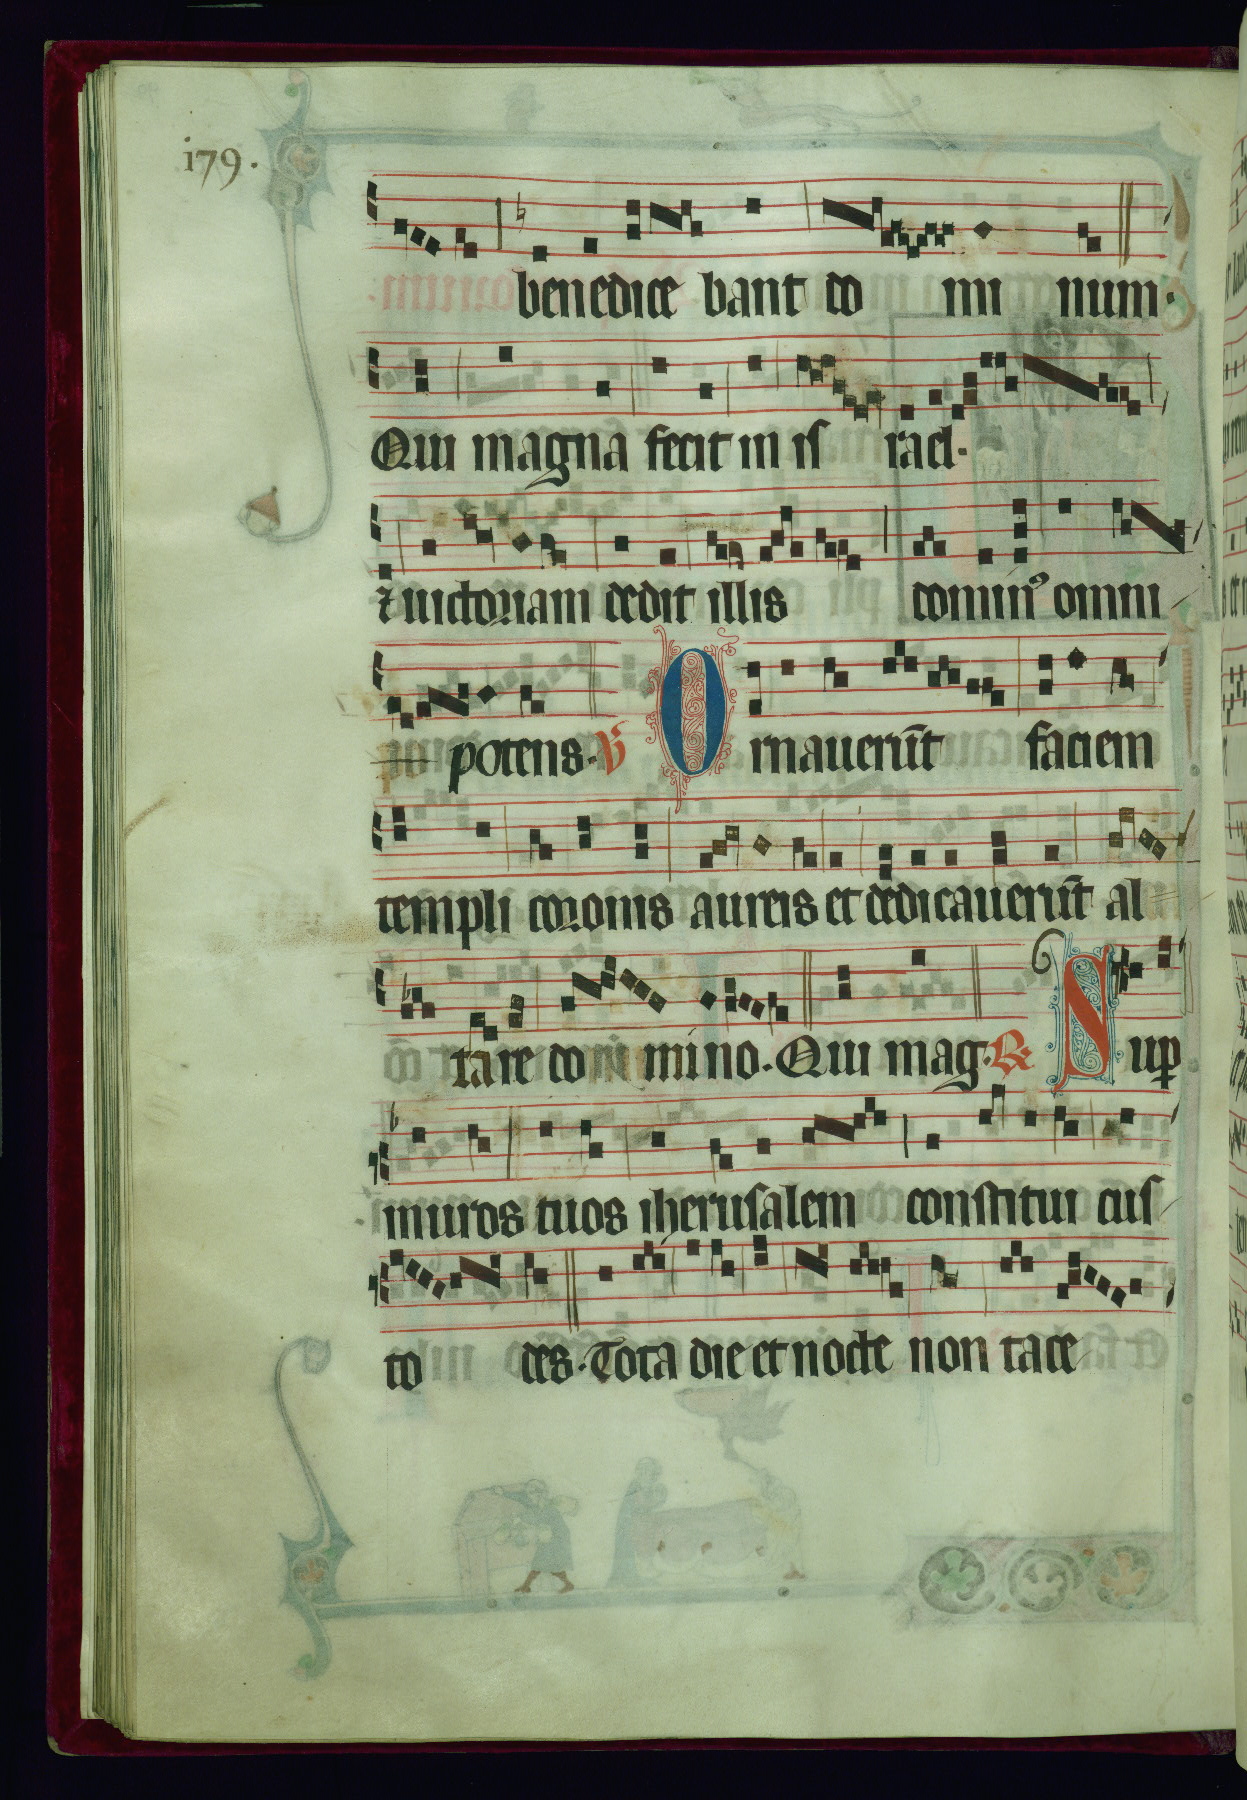 179.
benedice bant do mi num.
Qui magna fecit in is rael.
⁊ uictoriam dedit illis dominꝰ omni
potens. ℣ Ornauerūt faciem
templi coronis aureis et dedicauerūt al
tare do mi no. Qui mag. ℟ Suꝑ
muros tuos iherusalem constitui cus
to des. Tota die et nocte non tace